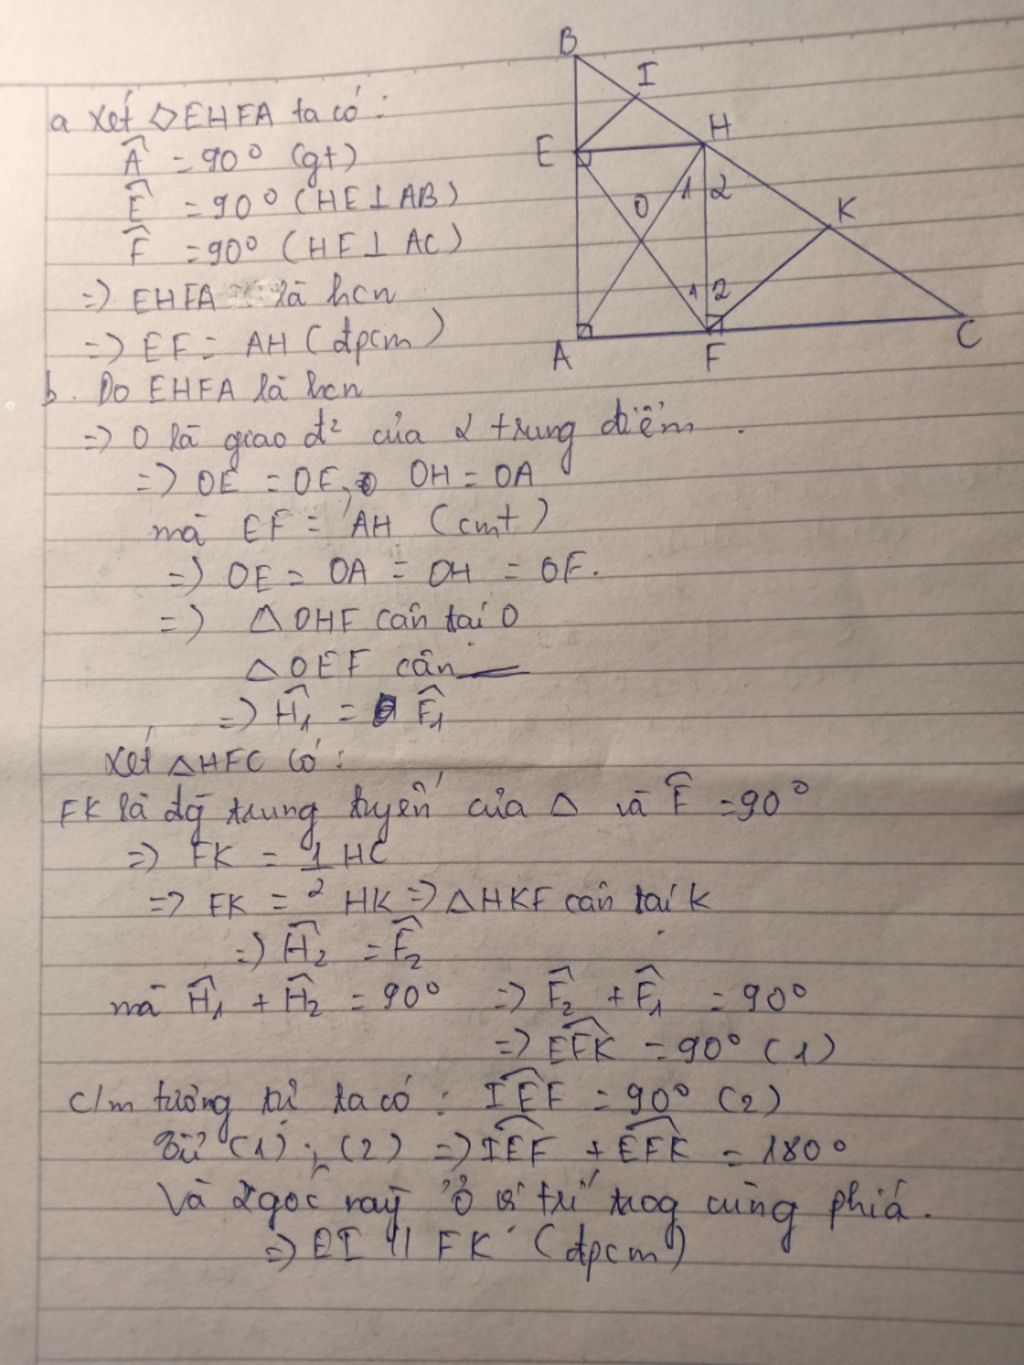 B
I
a xét ◇EHFA ta có :
H
Â = 90° (gt)
E
Ê = 90° (HE⊥AB)
1 2
K
O
F̂ = 90° (HF⊥AC)
=) EHFA là hcn
1 2
=) EF = AH (đpcm)
A
F
C
b. Do EHFA là hcn
=) O là giao đ² của 2 trung điểm .
=) OE = OF, OH = OA
mà EF = AH (cmt)
=) OE = OA = OH = OF.
=) △OHF cân tại O
△OEF cân —
=) Ĥ₁ = F̂₁
Xét △HFC có :
FK là đg̀ trung tuyến của △ và F̂ = 90°
=) FK = 1/2 HC
=> FK = HK => △HKF cân tại K
=) Ĥ₂ = F̂₂
mà Ĥ₁ + Ĥ₂ = 90° =) F̂₂ + F̂₁ = 90°
=) EFK = 90° (1)
c/m tương tự ta có : IEF = 90° (2)
Từ (1) ; (2) =) IEF + EFK = 180°
Và 2 góc này ở vị trí trog cùng phiá.
=) EI // FK (đpcm)